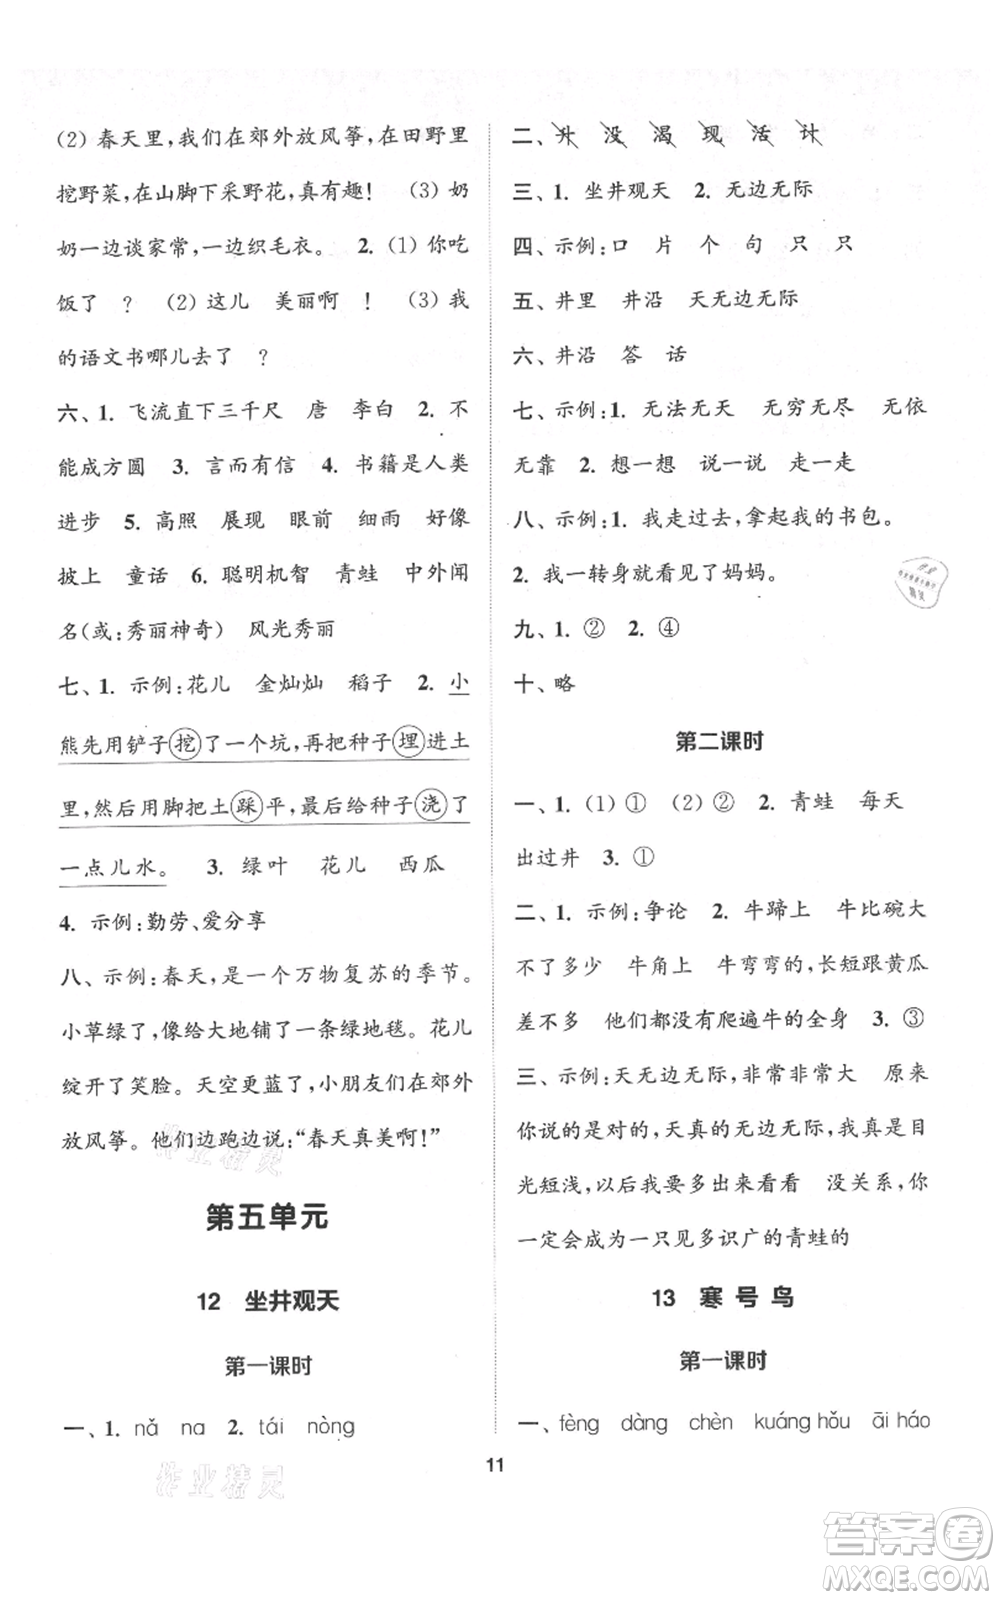 (2) 春天里,我们在郊外放风筝,在田野里
挖野菜,在山脚下采野花,真有趣! (3) 奶
奶一边谈家常,一边织毛衣。 2. (1) 你吃
饭了 ? (2) 这儿 美丽啊 ! (3) 我
的语文书哪儿去了 ?
六、1. 飞流直下三千尺 唐 李白 2. 不
能成方圆 3. 言而有信 4. 书籍是人类
进步 5. 高照 展现 眼前 细雨 好像
披上 童话 6. 聪明机智 青蛙 中外闻
名(或:秀丽神奇) 风光秀丽
七、1. 示例:花儿 金灿灿 稻子 2. 小
熊先用铲子挖了一个坑,再把种子埋进土
里,然后用脚把土踩平,最后给种子浇了
一点儿水。 3. 绿叶 花儿 西瓜
4. 示例:勤劳、爱分享
八、示例:春天,是一个万物复苏的季节。
小草绿了,像给大地铺了一条绿地毯。花儿
绽开了笑脸。天空更蓝了,小朋友们在郊外
放风筝。他们边跑边说:“春天真美啊!”
第五单元
12 坐井观天
第一课时
一、1. nǎ na 2. tái nòng
作业精灵
二、升 没 渴 现 活 计
三、1. 坐井观天 2. 无边无际
四、示例:口 片 个 句 只 只
五、井里 井沿 天无边无际
六、井沿 答 话
七、示例:1. 无法无天 无穷无尽 无依
无靠 2. 想一想 说一说 走一走
八、示例:1. 我走过去,拿起我的书包。
2. 我一转身就看见了妈妈。
九、1. ② 2. ④
十、略
第二课时
一、1. (1) ① (2) ② 2. 青蛙 每天
出过井 3. ①
二、1. 示例:争论 2. 牛蹄上 牛比碗大
不了多少 牛角上 牛弯弯的,长短跟黄瓜
差不多 他们都没有爬遍牛的全身 3. ③
三、示例:天无边无际,非常非常大 原来
你说的是对的,天真的无边无际,是我目
光短浅,以后我要多出来看看 没关系,你
一定会成为一只见多识广的青蛙的
13 寒号鸟
第一课时
一、fèng dàng chèn kuáng hǒu āi háo
11
作业精灵
答案卷
MXQE.COM